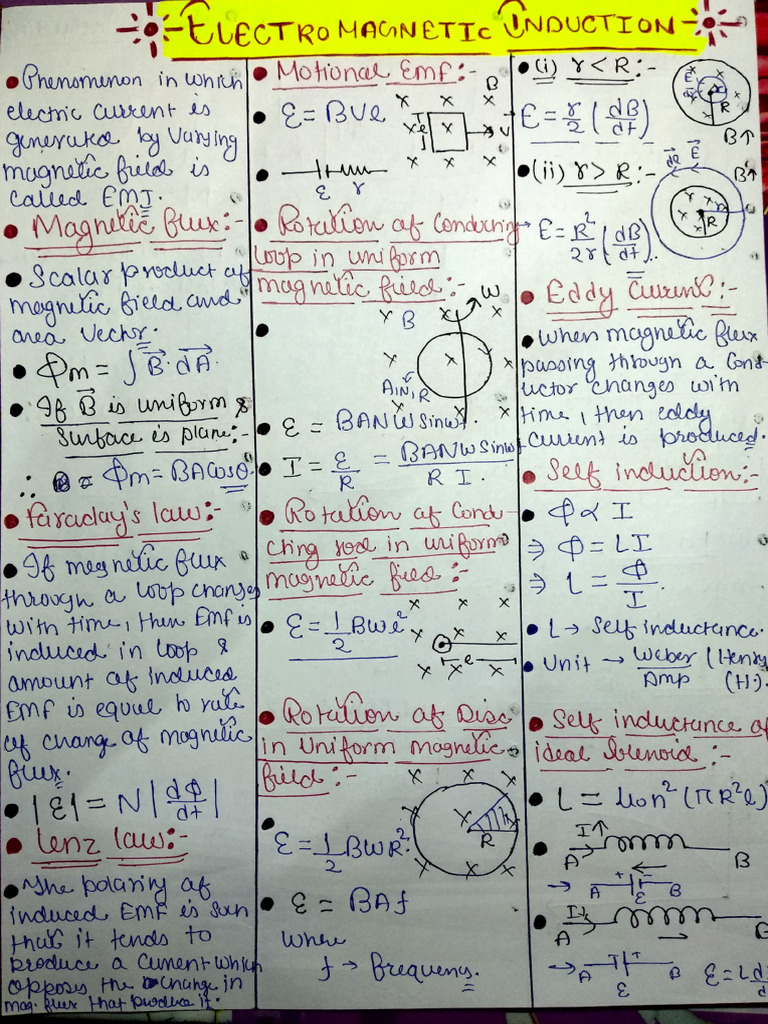 ELECTROMAGNETIC INDUCTION
• Phenomenon in which
electric current is
generated by varying
magnetic field is
called EMI.
• Magnetic flux:-
• Scalar product of
magnetic field and
area vector.
• Φm = ∫ B⃗. dA⃗.
• If B⃗ is uniform &
Surface is plane:-
∴ Φm = BACosθ.
• Faraday's law:-
• If megnetic flux
through a loop changes
with time, then EMF is
induced in loop &
amount of induced
EMF is equal to rate
of change of magnetic
flux.
• |ε| = N |dΦ/dt|
• Lenz law:-
• The polarity of
induced EMF is such
that it tends to
produce a current which
opposes the change in
mag. flux that produce it.
• Motional Emf:-
• ε = Bvl
B
l
v
ε r
• Rotation of Conducting
loop in uniform
magnetic field:-
B
ω
A, N, R
• ε = BANWSinωt.
• I = ε/R = BANWSinωt/R
I.
• Rotation of Condu-
cting rod in uniform
magnetic field:-
• ε = 1/2 Bωl²
l
• Rotation of Disc
in Uniform magnetic
field:-
• ε = 1/2 BWR².
R
• ε = BAf
where
f → frequency.
• (i) r < R:-
E = r/2 (dB/dt)
E
R
B↑
• (ii) r > R:-
dl⃗ E⃗
B↑
E = R²/2r (dB/dt).
R
• Eddy Current:-
• When magnetic flux
passing through a Cond-
uctor changes with
time, then eddy
current is produced.
• Self induction:-
• Φ ∝ I
⇒ Φ = LI
⇒ L = Φ/I.
• L → Self inductance.
• Unit → Weber/Amp (Henry
(H).
• Self inductance of
ideal Solenoid:-
• L = μ₀n²(πR²l)
• I↑
A B
→ A + - B
ε
• I↓
A B
→ A - + B
ε
ε = L di/